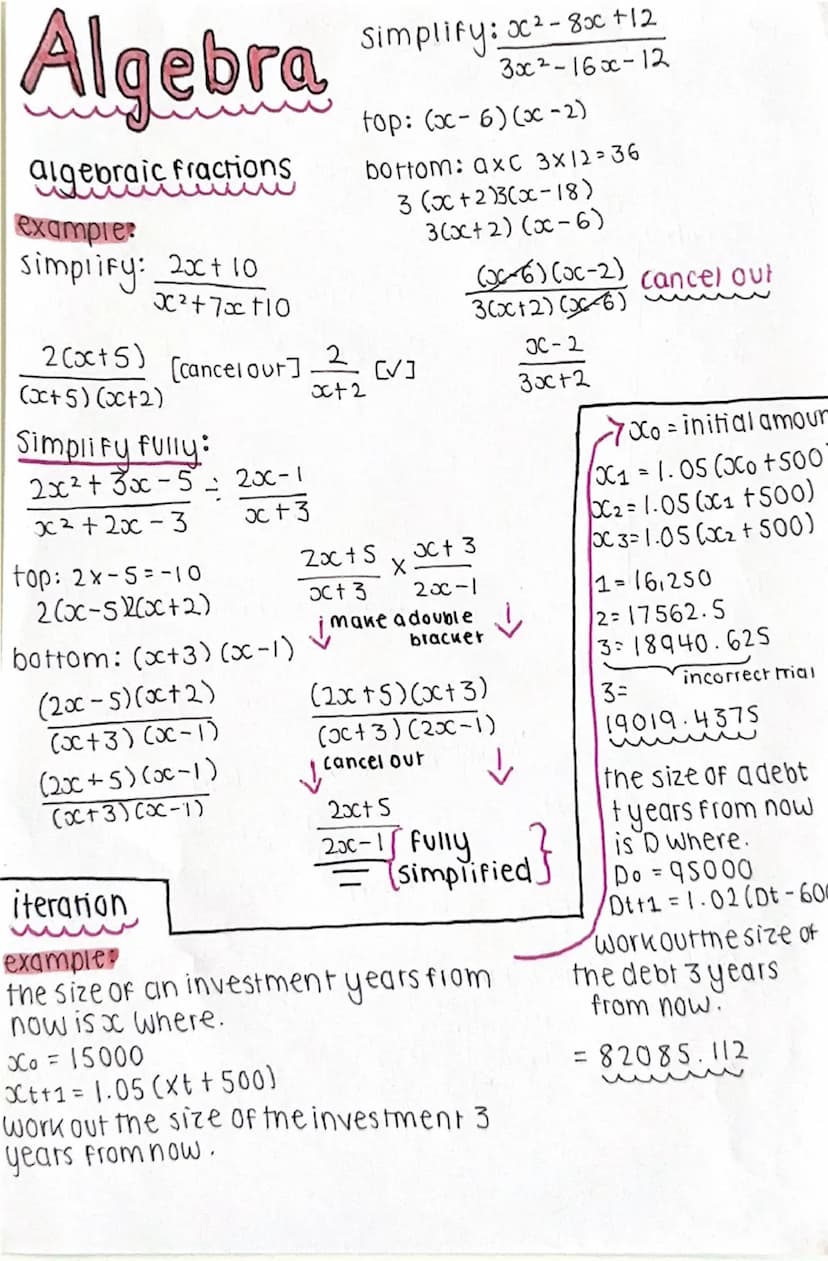 Algebra
algebraic fractions
example:
simplify: 2x + 10
x² + 7x + 10
2(x+5) [cancel out] 2 [✓]
(x+5)(x+2) x+2
simplify: x² - 8x + 12
3x² - 16x - 12
top: (x - 6)(x - 2)
bottom: axc 3x12=36
3(x+2)3(x-18)
3(x+2)(x-6)
(x-6)(x-2) cancel out
3(x+2)(x-6)
x - 2
3x+2
simplify fully:
2x² + 3x - 5 ÷ 2x-1
x² + 2x - 3 x+3
top: 2x-5=-10
2(x-5)2(x+2)
bottom: (x+3)(x-1)
(2x-5)(x+2)
(x+3)(x-1)
(2x+5)(x-1)
(x+3)(x-1)
2x+5 x x+3
x+3 2x-1
↓ make a double ↓
bracket
(2x+5)(x+3)
(x+3)(2x-1)
↓ cancel out ↓
2x+5
2x-1 { fully
simplified }
iteration
example:
the size of an investment years from
now is x where.
x0 = 15000
xt+1 = 1.05(xt + 500)
work out the size of the investment 3
years from now.
→ x0 = initial amoun
x1 = 1.05(x0 + 500
x2 = 1.05(x1 + 500)
x3 = 1.05(x2 + 500)
1 = 16,250
2 = 17562.5
3 = 18940.625
incorrect trial
3 =
19019.4375
the size of a debt
t years from now
is D where.
D0 = 95000
Dt+1 = 1.02(Dt - 600
work out the size of
the debt 3 years
from now.
= 82085.112